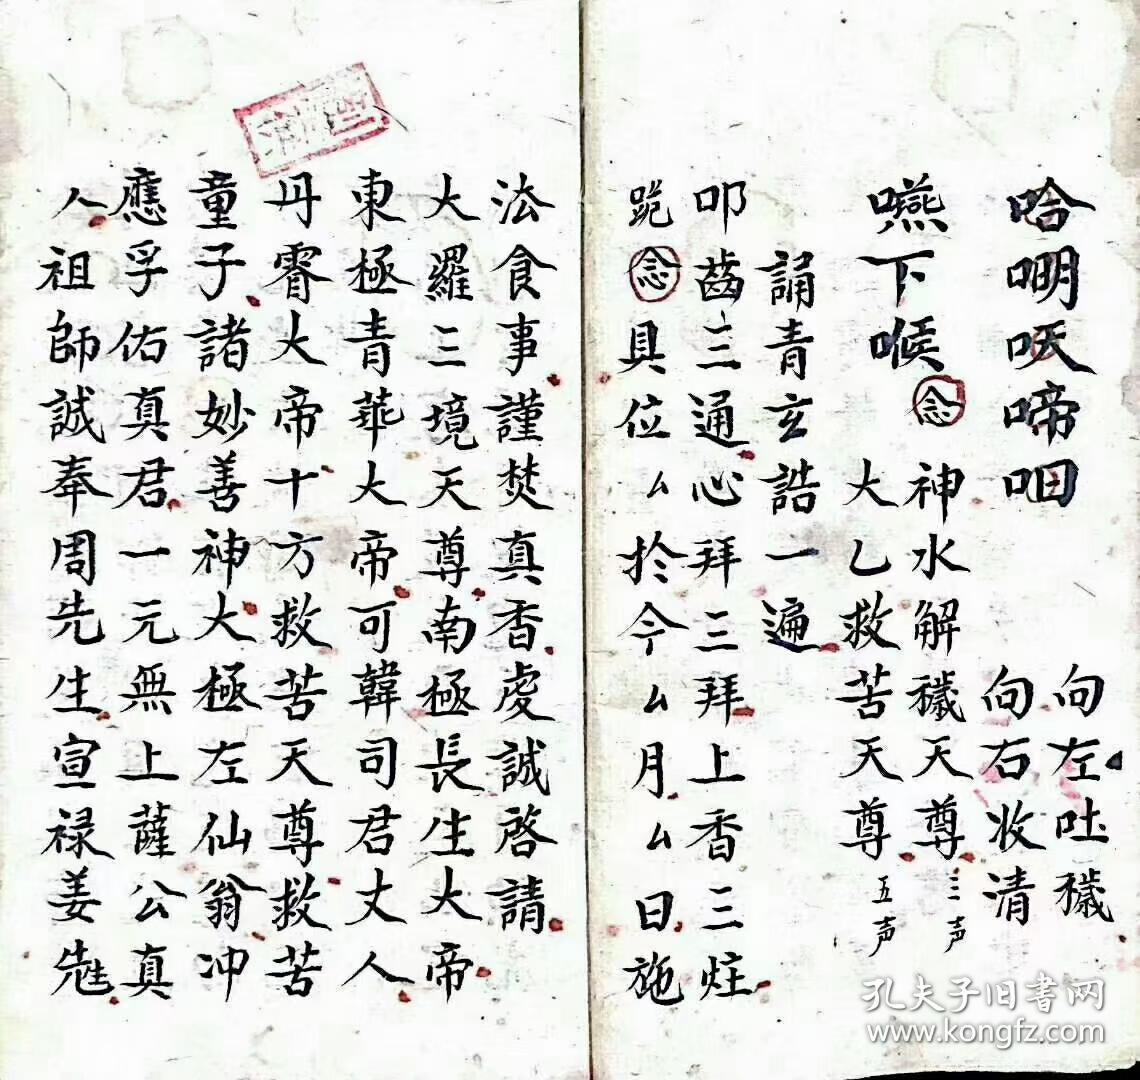 哈㖫吷啼咽
向左吐穢
向右收清
嚥下喉
念
神水解穢天尊三声
大乙救苦天尊五声
誦青玄誥一遍
叩齒三通心拜三拜上香三炷
跪念具位厶於今厶月厶日施
法食事謹焚真香虔誠啓請
大羅三境天尊南極長生大帝
東極青華大帝可韓司君丈人
丹霄大帝十方救苦天尊救苦
童子諸妙善神大極左仙翁冲
應孚佑真君一元無上薩公真
人祖師誠奉周先生宣禄姜先生
孔夫子旧书网
www.kongfz.com